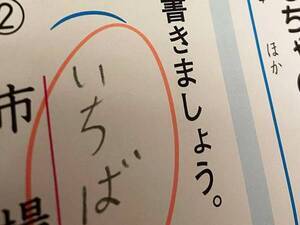 ちゃの
ほか
書きましょう。
②
市場
いちば